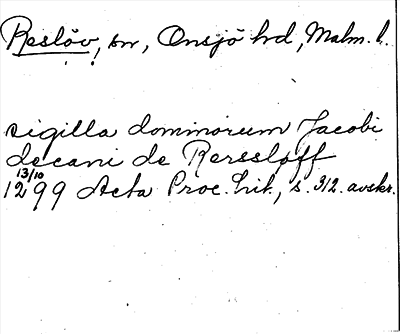 Reslöv, sn, Onsjö hd, Malm. l.
sigilla dominorum Jacobi
decani de Rerssloff
13/10
1299 Acta Proc. Lit., s. 312. avskr.